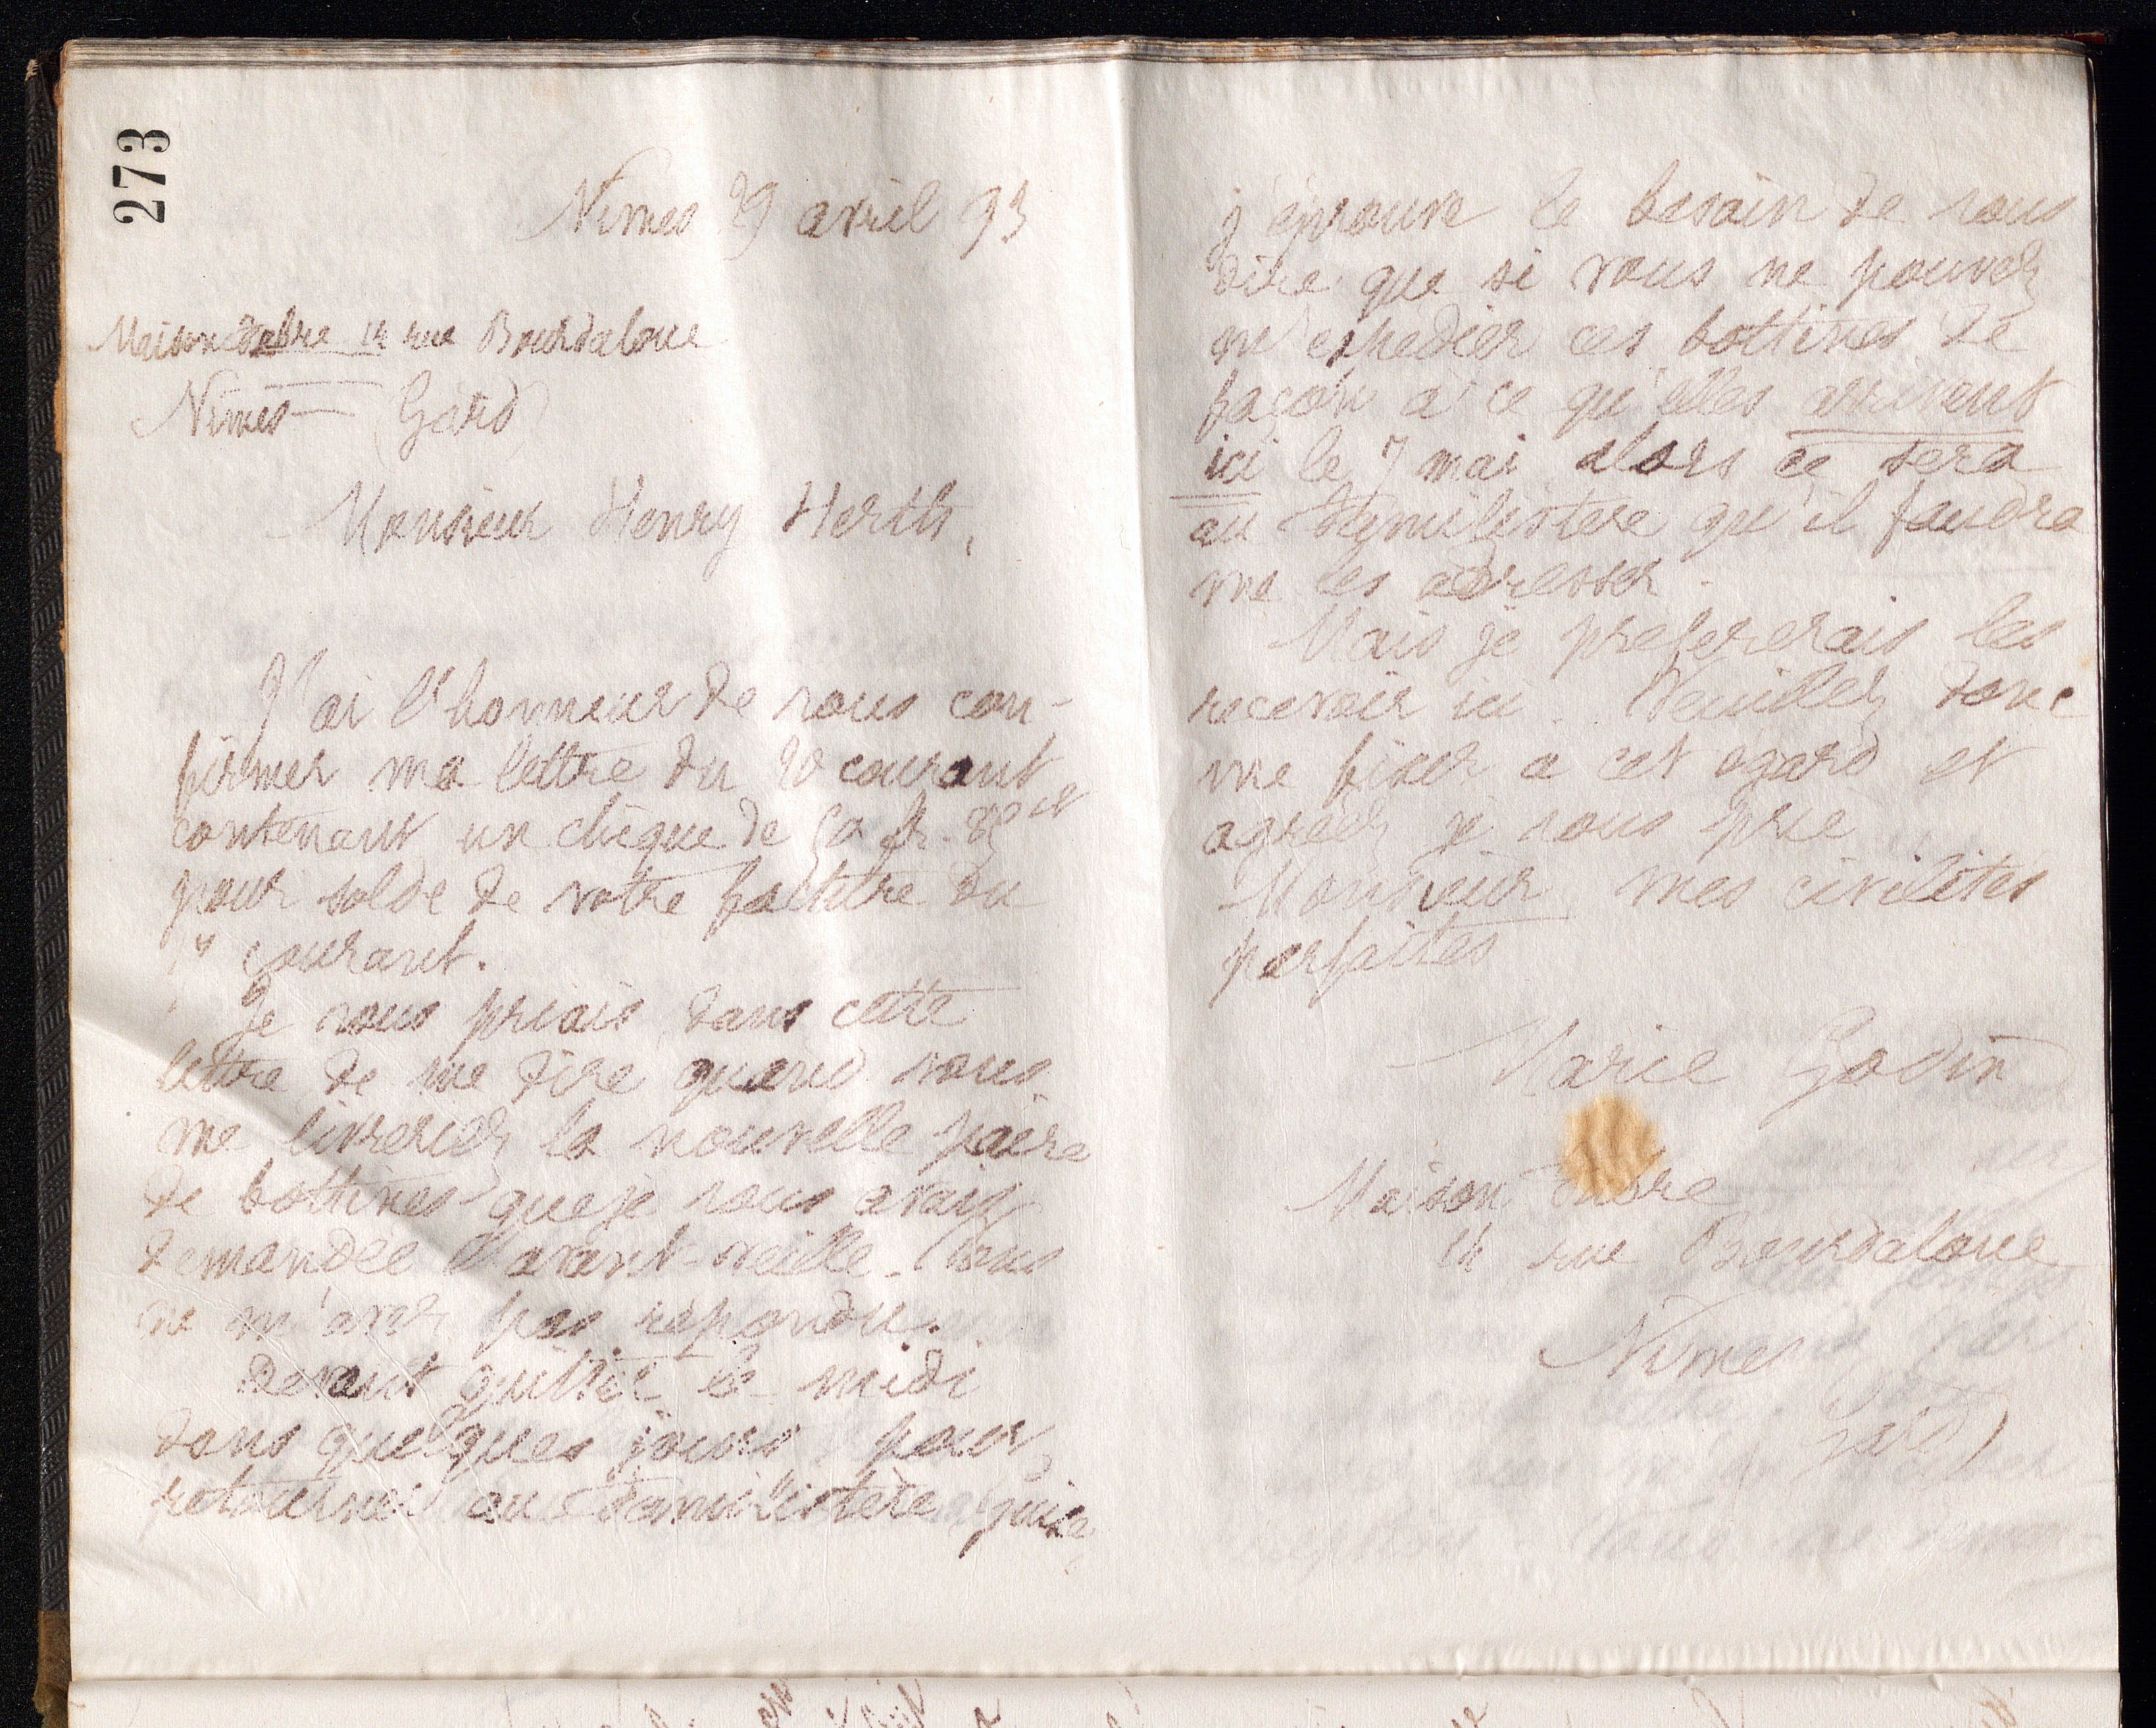 273
Nîmes 29 avril 93
Maison Fabre 14 rue Bourdaloue
Nîmes Gard
Monsieur Henry Herth,
J'ai l'honneur de vous con-
firmer ma lettre du 20 courant
contenant un chèque de 50 fr. 85 ct
pour solde de votre facture du
courant.
Je vous priais dans cette
lettre de me dire quand vous
me livreriez la nouvelle paire
de bottines que je vous avais
demandée l'avant-veille. Vous
ne m'avez pas répondu.
Devant quitter le midi
dans quelques jours pour
retourner au Familistère Guise,
j'éprouve le besoin de vous
dire que si vous ne pouvez
m'expedier ces bottines de
façon à ce qu'elles arrivent
ici le 7 mai, alors ce sera
au Familistere qu'il faudra
me les adresser.
Mais je prefererais les
recevoir ici. Veuillez donc
me fixer a cet égard et
agréez je vous prie
Monsieur mes civilités
parfaites
Marie Godin
Maison Fabre
14 rue Bourdaloue
Nîmes
Gard